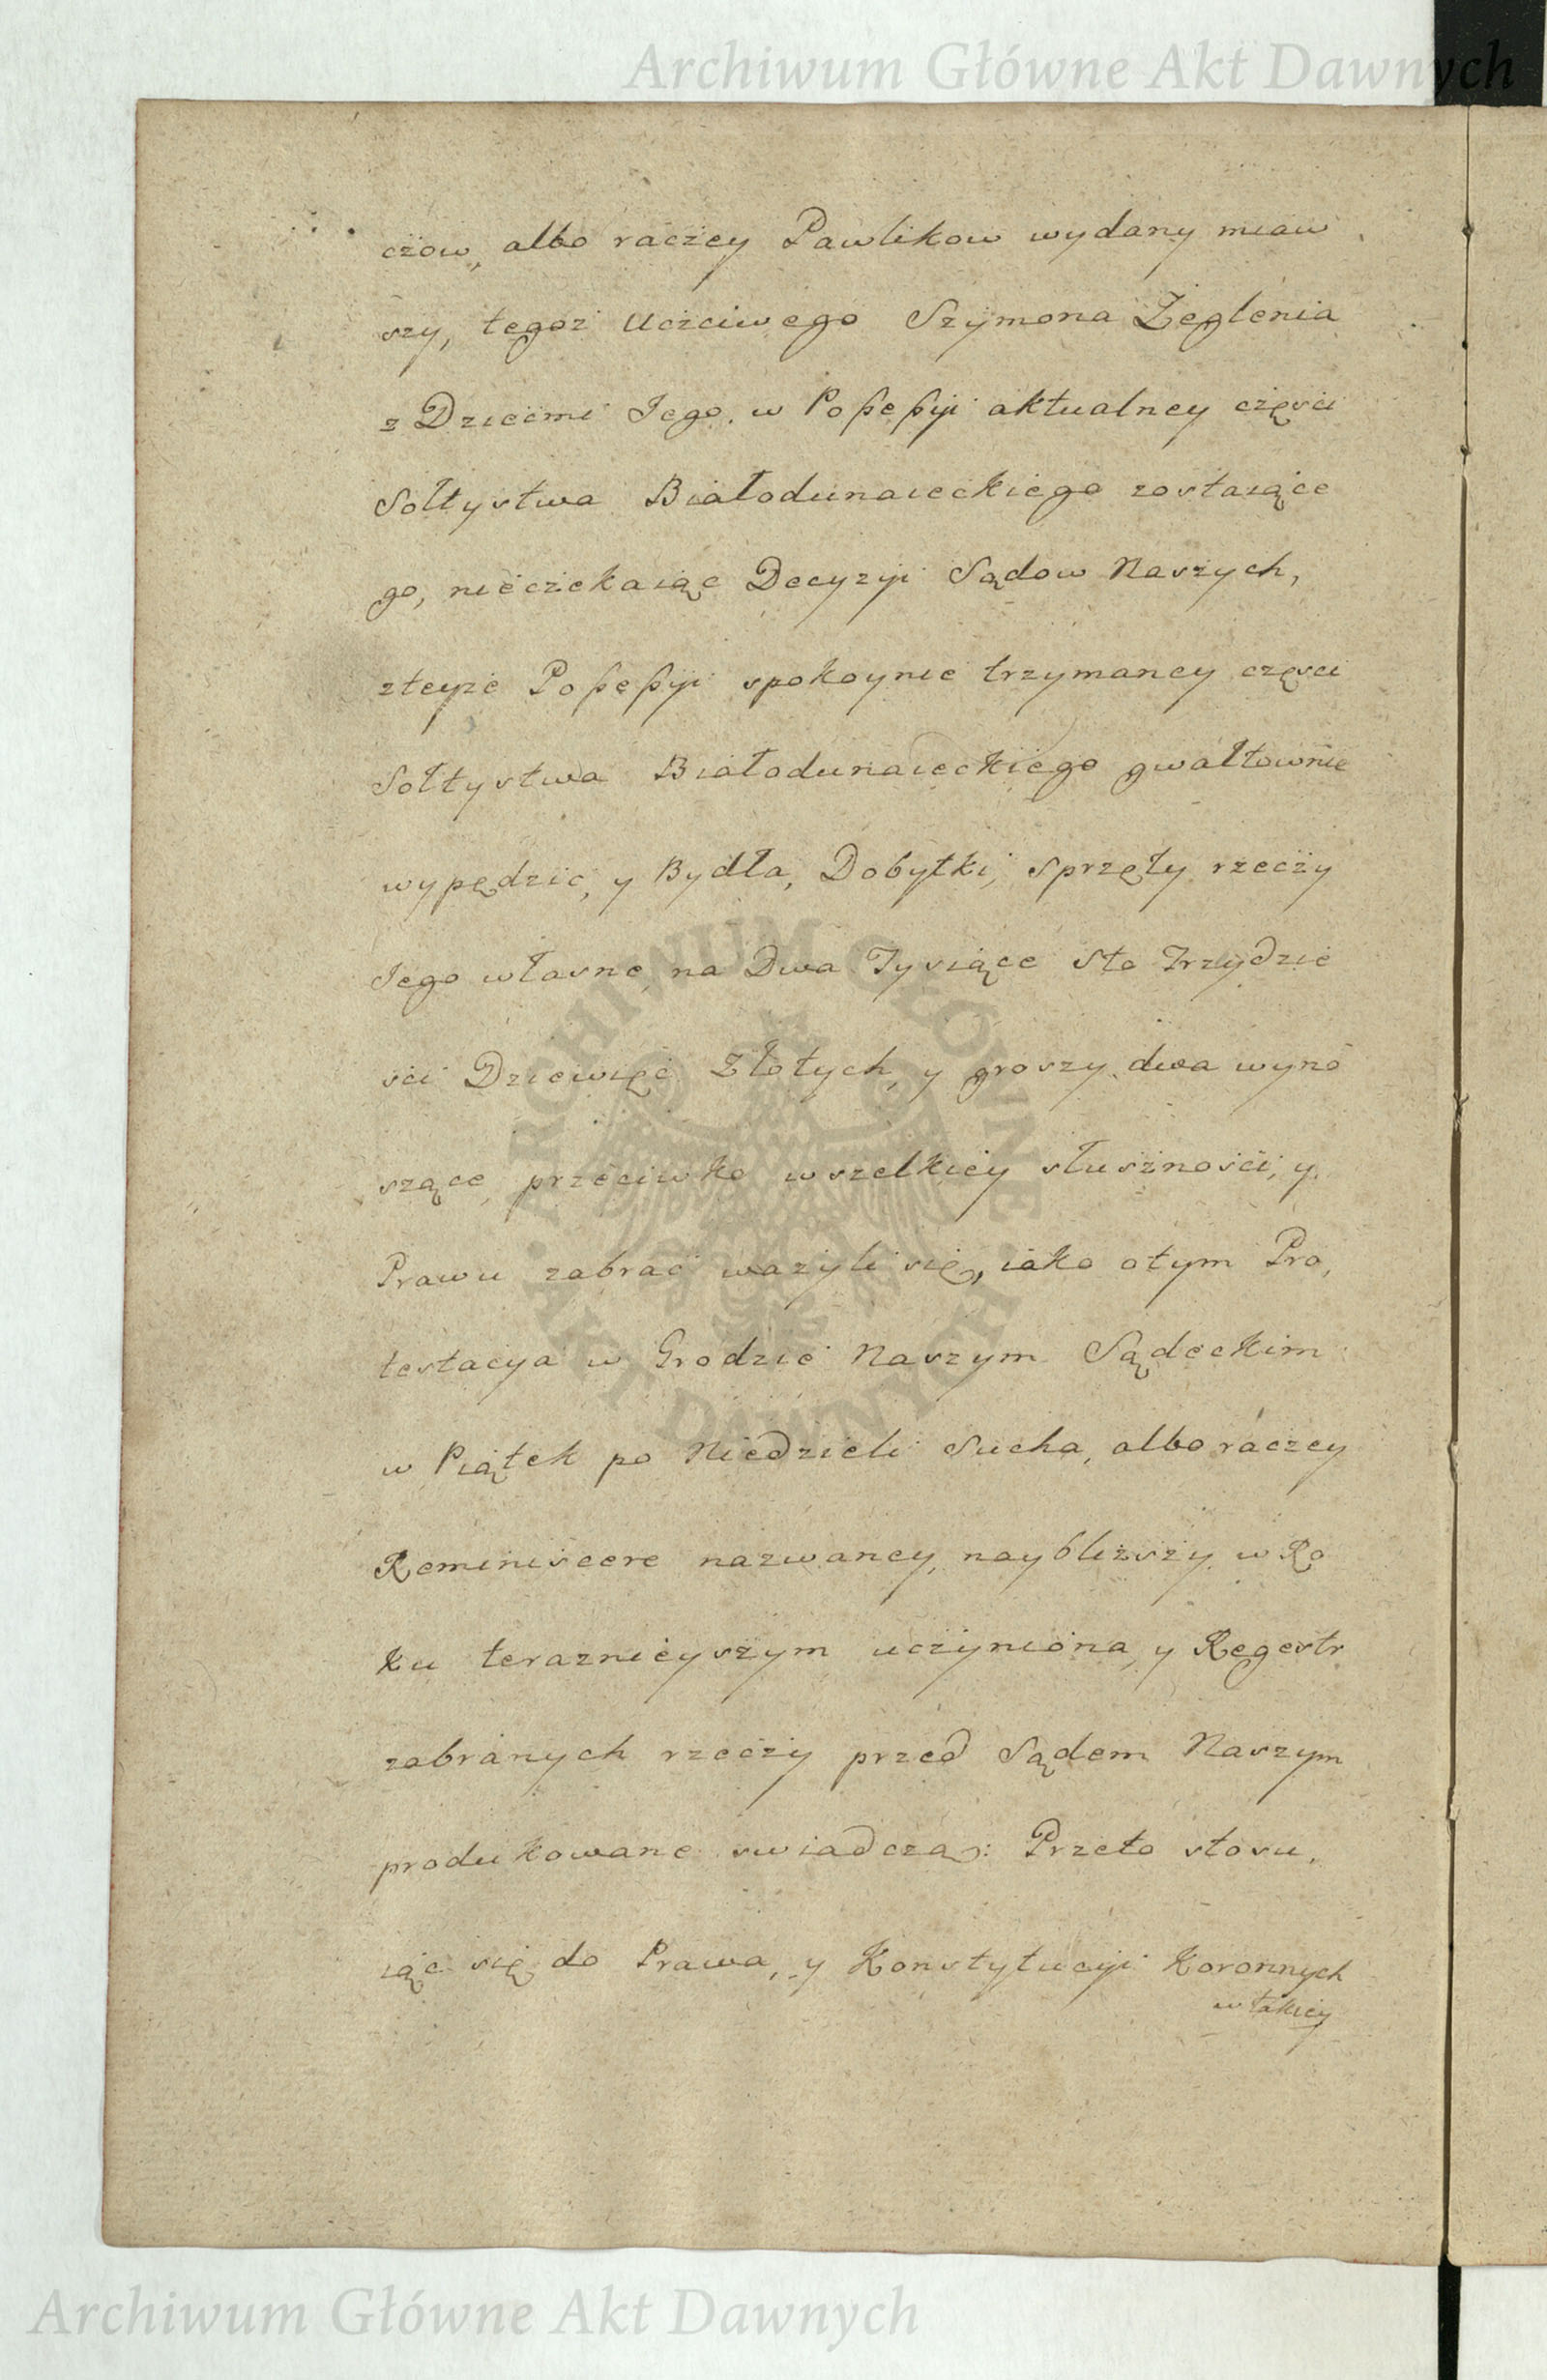 Archiwum Główne Akt Dawnych
czow, albo raczey Pawlikow wydany miaw
szy, tegoż Uczciwego Szymona Żeglenia
z Dziećmi Jego, w Poßeßyi aktualney części
Sołtystwa Białodunaieckiego zostaiące
go, nieczekaiąc Decyzyi Sądow Naszych,
zteyże Poßeßyi spokoynie trzymaney części
Sołtystwa Białodunaieckiego gwałtownie
wypędzić, y Bydła, Dobytki, sprzęty rzeczy
Jego własne na Dwa Tysiące Sto Trzydzie
ści Dziewięć Złotych, y groszy dwa wyno
szące przeciwko wszelkiey słuszności, y
Prawu zabrać ważyli się, iako otym Pro,
testacya w Grodzie Naszym Sądeckim
w Piątek po Niedzieli Sucha, albo raczey
Reminiscere nazwaney, naybliższy w Ro
ku teraznieyszym uczyniona, y Regestr
zabranych rzeczy przed Sądem Naszym
produkowane swiadczą: Przeto stosu,
iąc się do Prawa, y Konstytucyi Koronnych
w takiey
ARCHIWUM GŁÓWNE · AKT DAWNYCH ·
Archiwum Główne Akt Dawnych